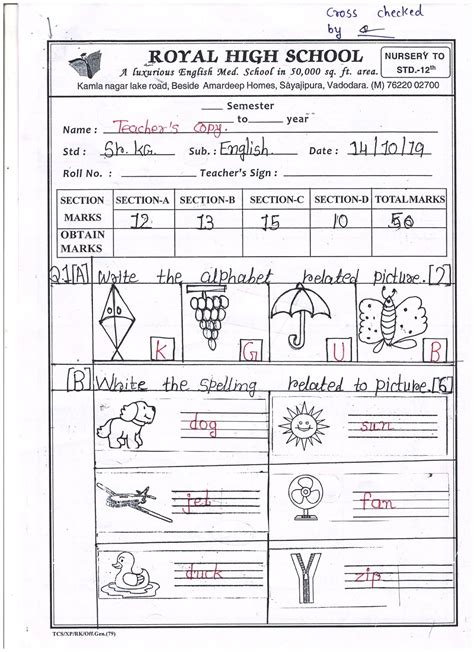 Cross checked
by
ROYAL HIGH SCHOOL
A luxurious English Med. School in 50,000 sq. ft. area.
NURSERY TO
STD.-12th
Kamla nagar lake road, Beside Amardeep Homes, Sayajipura, Vadodara. (M) 76220 02700
Semester
Name : Teacher's Copy. to year
Std : Sr. KG. Sub. : English. Date : 14/10/19
Roll No. : Teacher's Sign :
SECTION MARKS SECTION-A SECTION-B SECTION-C SECTION-D TOTAL MARKS
12 13 15 10 50
OBTAIN MARKS
Q1[A] Write the alphabet related picture. [2]
K G U B
[B] White the spelling related to picture. [6]
dog sun
jet fan
duck zip
TCS/XP/RK/Off.Gen.(79)